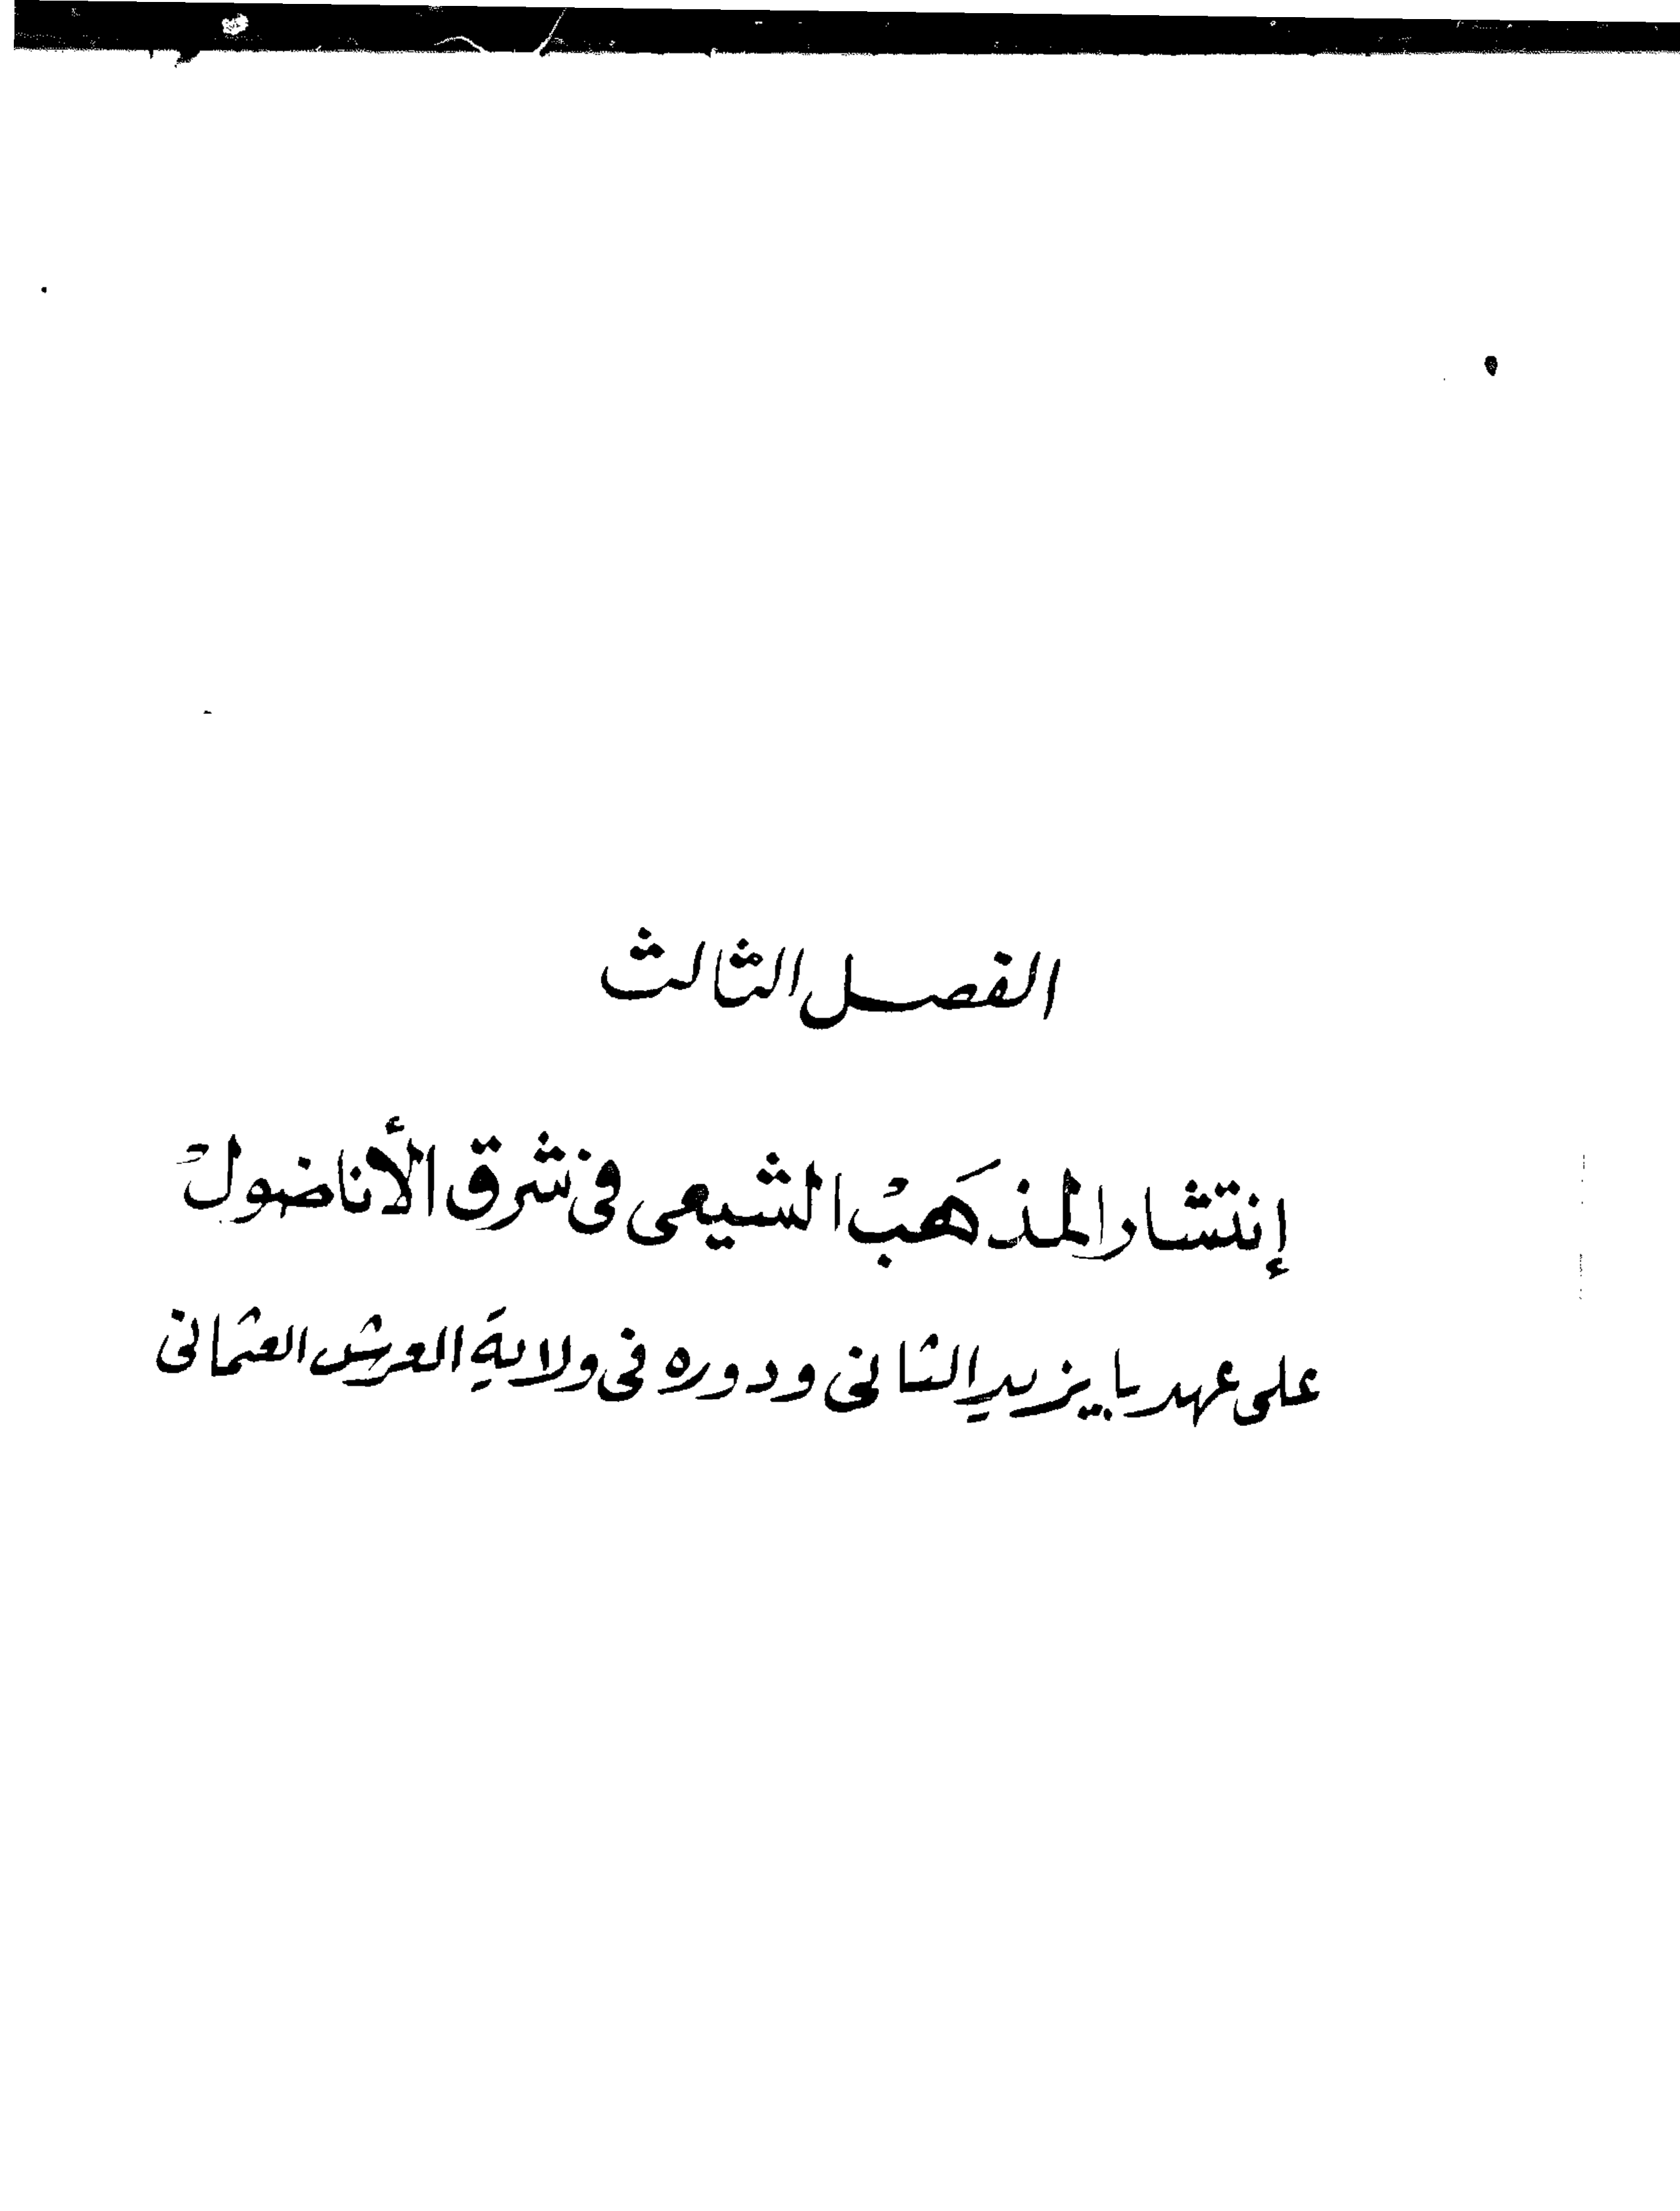 الفصل الثالث
إنتشار المذهب الشيعى فى شرق الأناضول
على عهد بايزيد الثانى ودوره فى ولاية العرش العثمانى